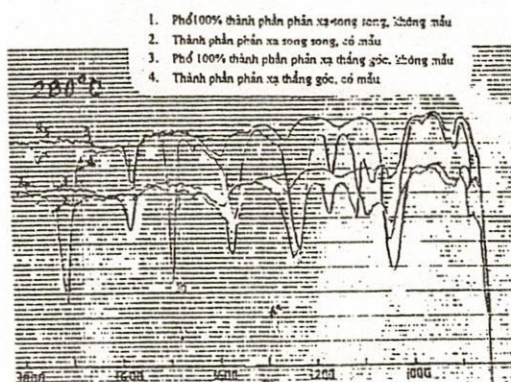 1. Phổ 100% thành phần phản xạ song song, không mẫu
2. Thành phần phản xạ song song, có mẫu
3. Phổ 100% thành phần phản xạ thẳng góc, không mẫu
4. Thành phần phản xạ thẳng góc, có mẫu
280°C
1200
1000